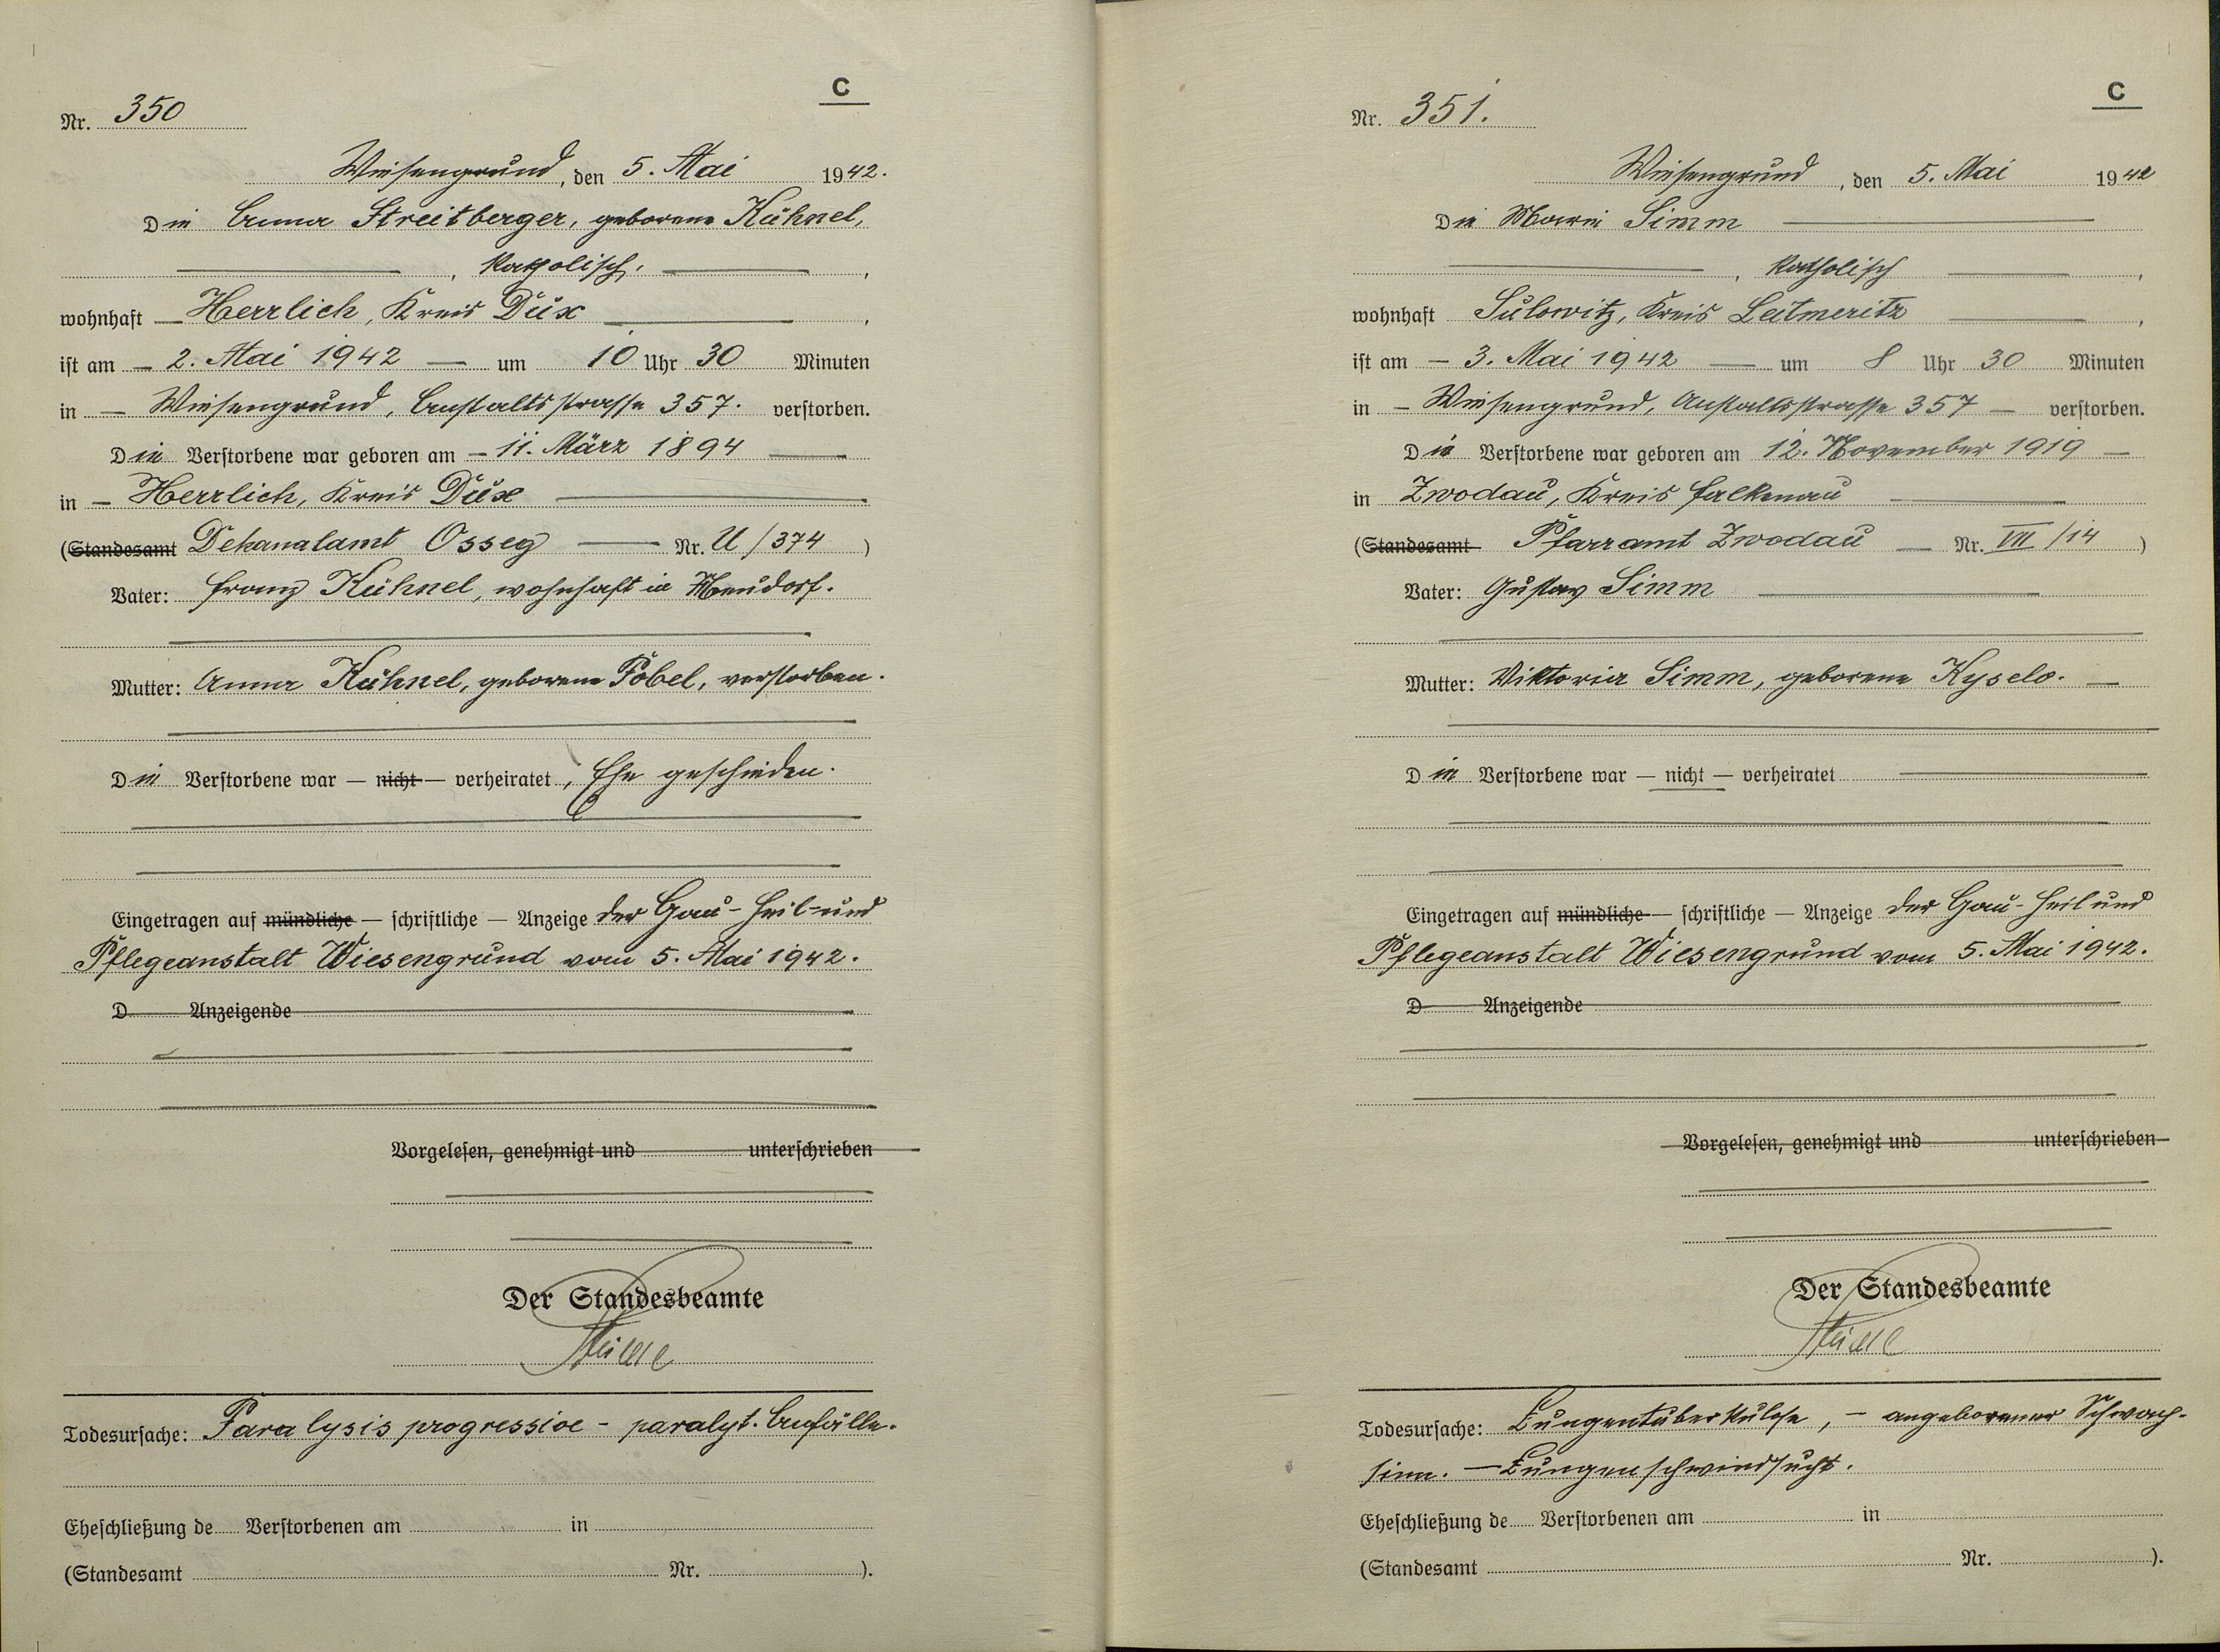 C
Nr. 350
Wiesengrund, den 5. Mai 1942.
Die Anna Streitberger, geborene Kühnel,
, katholisch,
wohnhaft Herrlich, Kreis Dux,
ist am 2. Mai 1942 um 10 Uhr 30 Minuten
in Wiesengrund, Anstaltsstrasse 357. verstorben.
Die Verstorbene war geboren am 11. März 1894
in Herrlich, Kreis Dux
(Standesamt Dekanalamt Ossegg Nr. U/374)
Vater: Franz Kühnel, wohnhaft in Neudorf.
Mutter: Anna Kühnel, geborene Pöbel, verstorben.
Die Verstorbene war — nicht — verheiratet, Ehe geschieden.
Eingetragen auf mündliche — schriftliche — Anzeige der Gau-Heil-und
Pflegeanstalt Wiesengrund vom 5. Mai 1942.
D Anzeigende
Vorgelesen, genehmigt und unterschrieben
Der Standesbeamte
Todesursache: Paralysis progressive - paralyt. Anfälle.
Eheschließung de Verstorbenen am in
(Standesamt Nr. ).
C
Nr. 351.
Wiesengrund, den 5. Mai 1942
Die Marie Simm
, katholisch,
wohnhaft Sulowitz, Kreis Leitmeritz,
ist am - 3. Mai 1942 um 8 Uhr 30 Minuten
in - Wiesengrund, Anstaltsstrasse 357 - verstorben.
Die Verstorbene war geboren am 12. November 1919
in Zwodau, Kreis Falkenau
(Standesamt Pfarramt Zwodau Nr. VII/14)
Vater: Gustav Simm
Mutter: Viktoria Simm, geborene Kyselo.
Die Verstorbene war — nicht — verheiratet
Eingetragen auf mündliche — schriftliche — Anzeige der Gau-Heil und
Pflegeanstalt Wiesengrund vom 5. Mai 1942.
D Anzeigende
Vorgelesen, genehmigt und unterschrieben
Der Standesbeamte
Todesursache: Lungentuberkulose, - angeborener Schwach-
sinn. - Lungenschwindsucht.
Eheschließung de Verstorbenen am in
(Standesamt Nr. ).